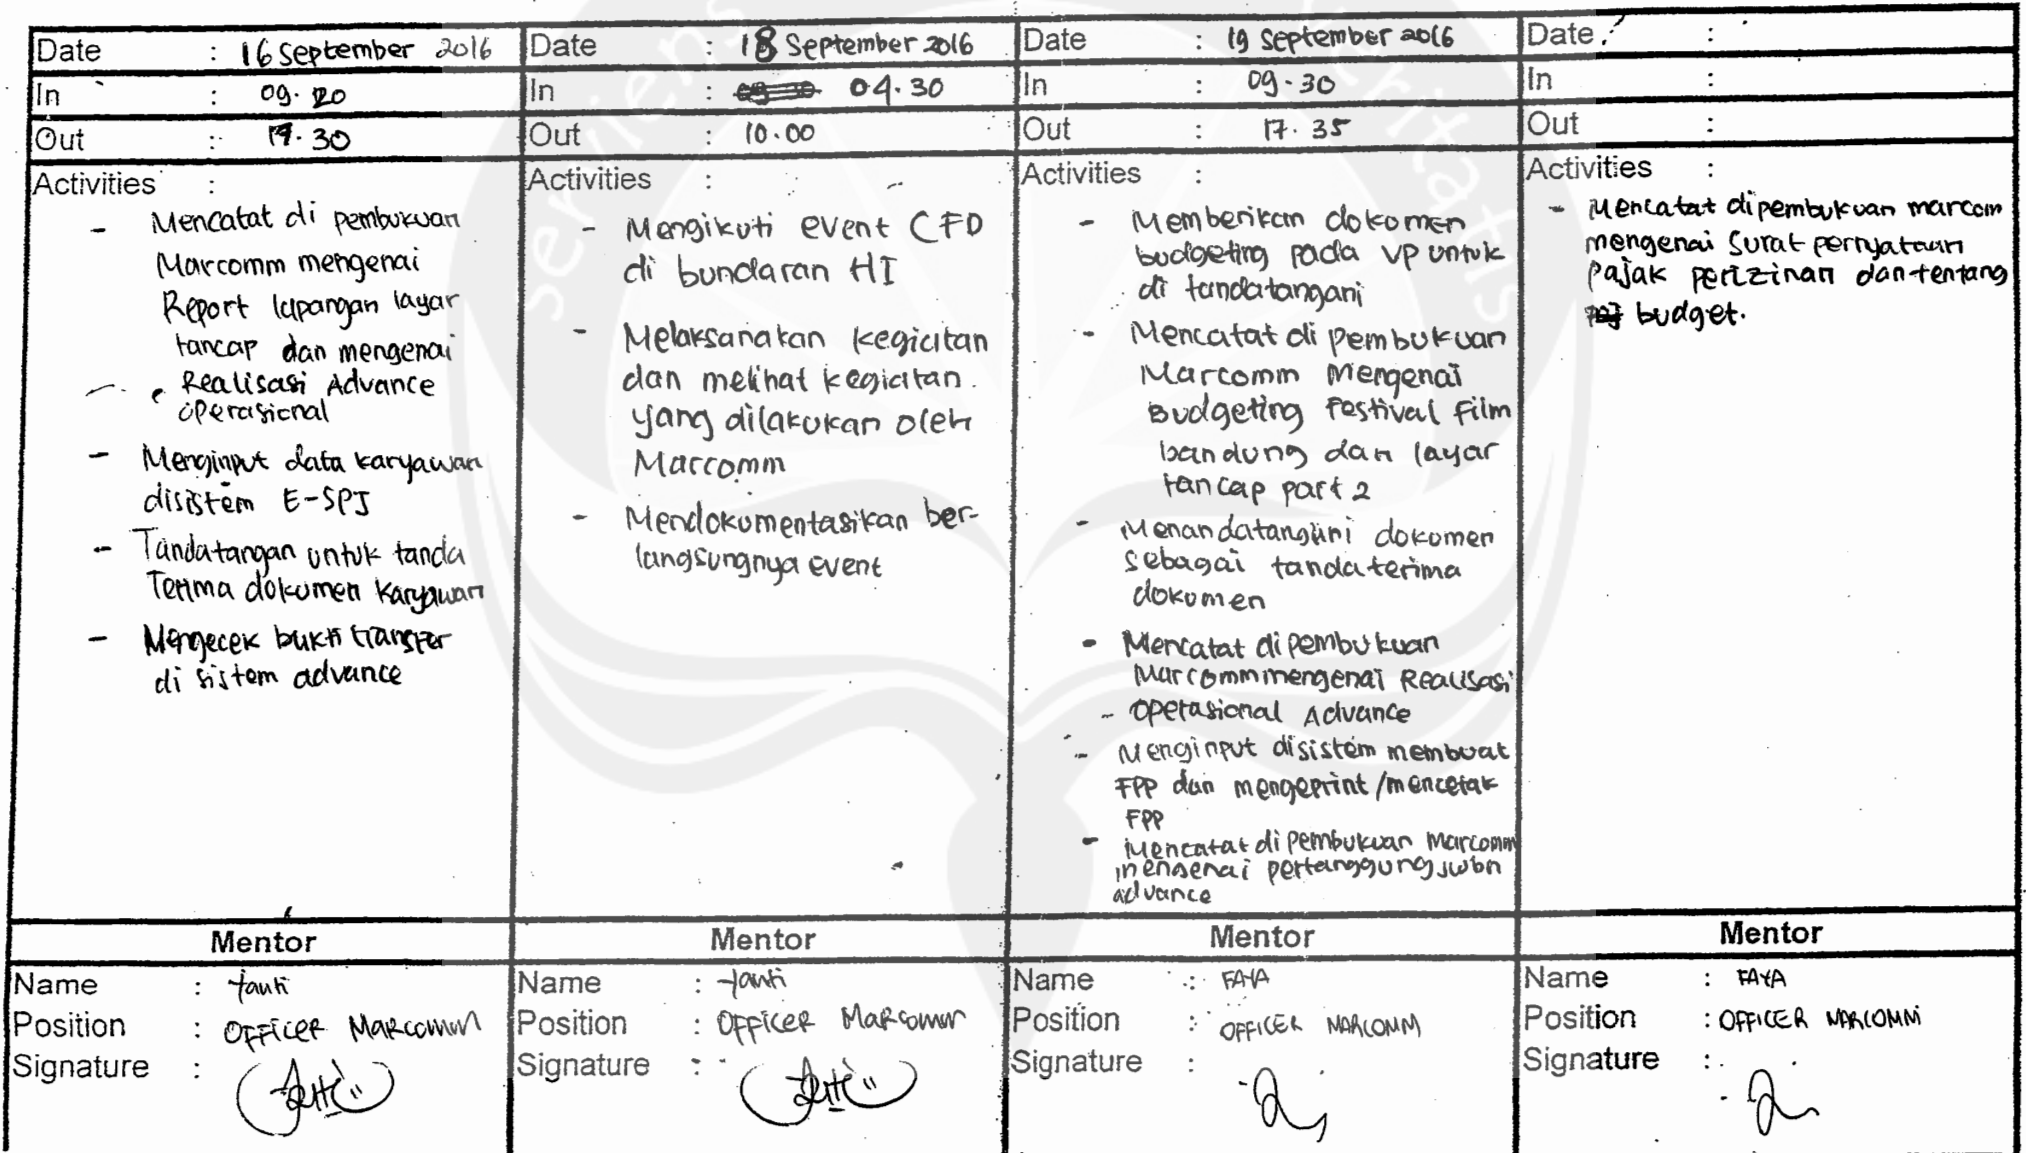 Date : 16 September 2016
In : 09.20
Out : 17.30
Activities :
- Mencatat di pembukuan
Marcomm mengenai
Report lapangan layar
tancap dan mengenai
Realisasi Advance
operasional
- Menginput data karyawan
disistem E-SPJ
- Tandatangan untuk tanda
Terima dokumen karyawan
- Mengecek bukti transfer
di sistem advance
Mentor
Name : tanti
Position : OFFICER MARCOMM
Signature :
Date : 18 September 2016
In : 04.30
Out : 10.00
Activities :
- Mengikuti event CFD
di bundaran HI
- Melaksanakan kegiatan
dan melihat kegiatan
yang dilakukan oleh
Marcomm
- Mendokumentasikan ber-
langsungnya event
Mentor
Name : tanti
Position : OFFICER Marcomm
Signature :
Date : 19 September 2016
In : 09.30
Out : 17.35
Activities :
- Memberikan dokumen
budgeting pada VP untuk
di tandatangani
- Mencatat di pembukuan
Marcomm Mengenai
Budgeting Festival Film
bandung dan layar
tancap part 2
- Menandatangani dokumen
sebagai tanda terima
dokumen
- Mencatat di pembukuan
Marcomm mengenai Realisasi
- operasional Advance
- Menginput disistem membuat
FPP dan mengeprint/mencetak
FPP
- Mencatat di pembukuan Marcomm
mengenai pertanggungjwbn
advance
Mentor
Name : FAYA
Position : OFFICER MARCOMM
Signature :
Date :
In :
Out :
Activities :
- Mencatat dipembukuan marcom
mengenai surat pernyataan
Pajak perizinan dan tentang
budget.
Mentor
Name : FAYA
Position : OFFICER MARCOMM
Signature :